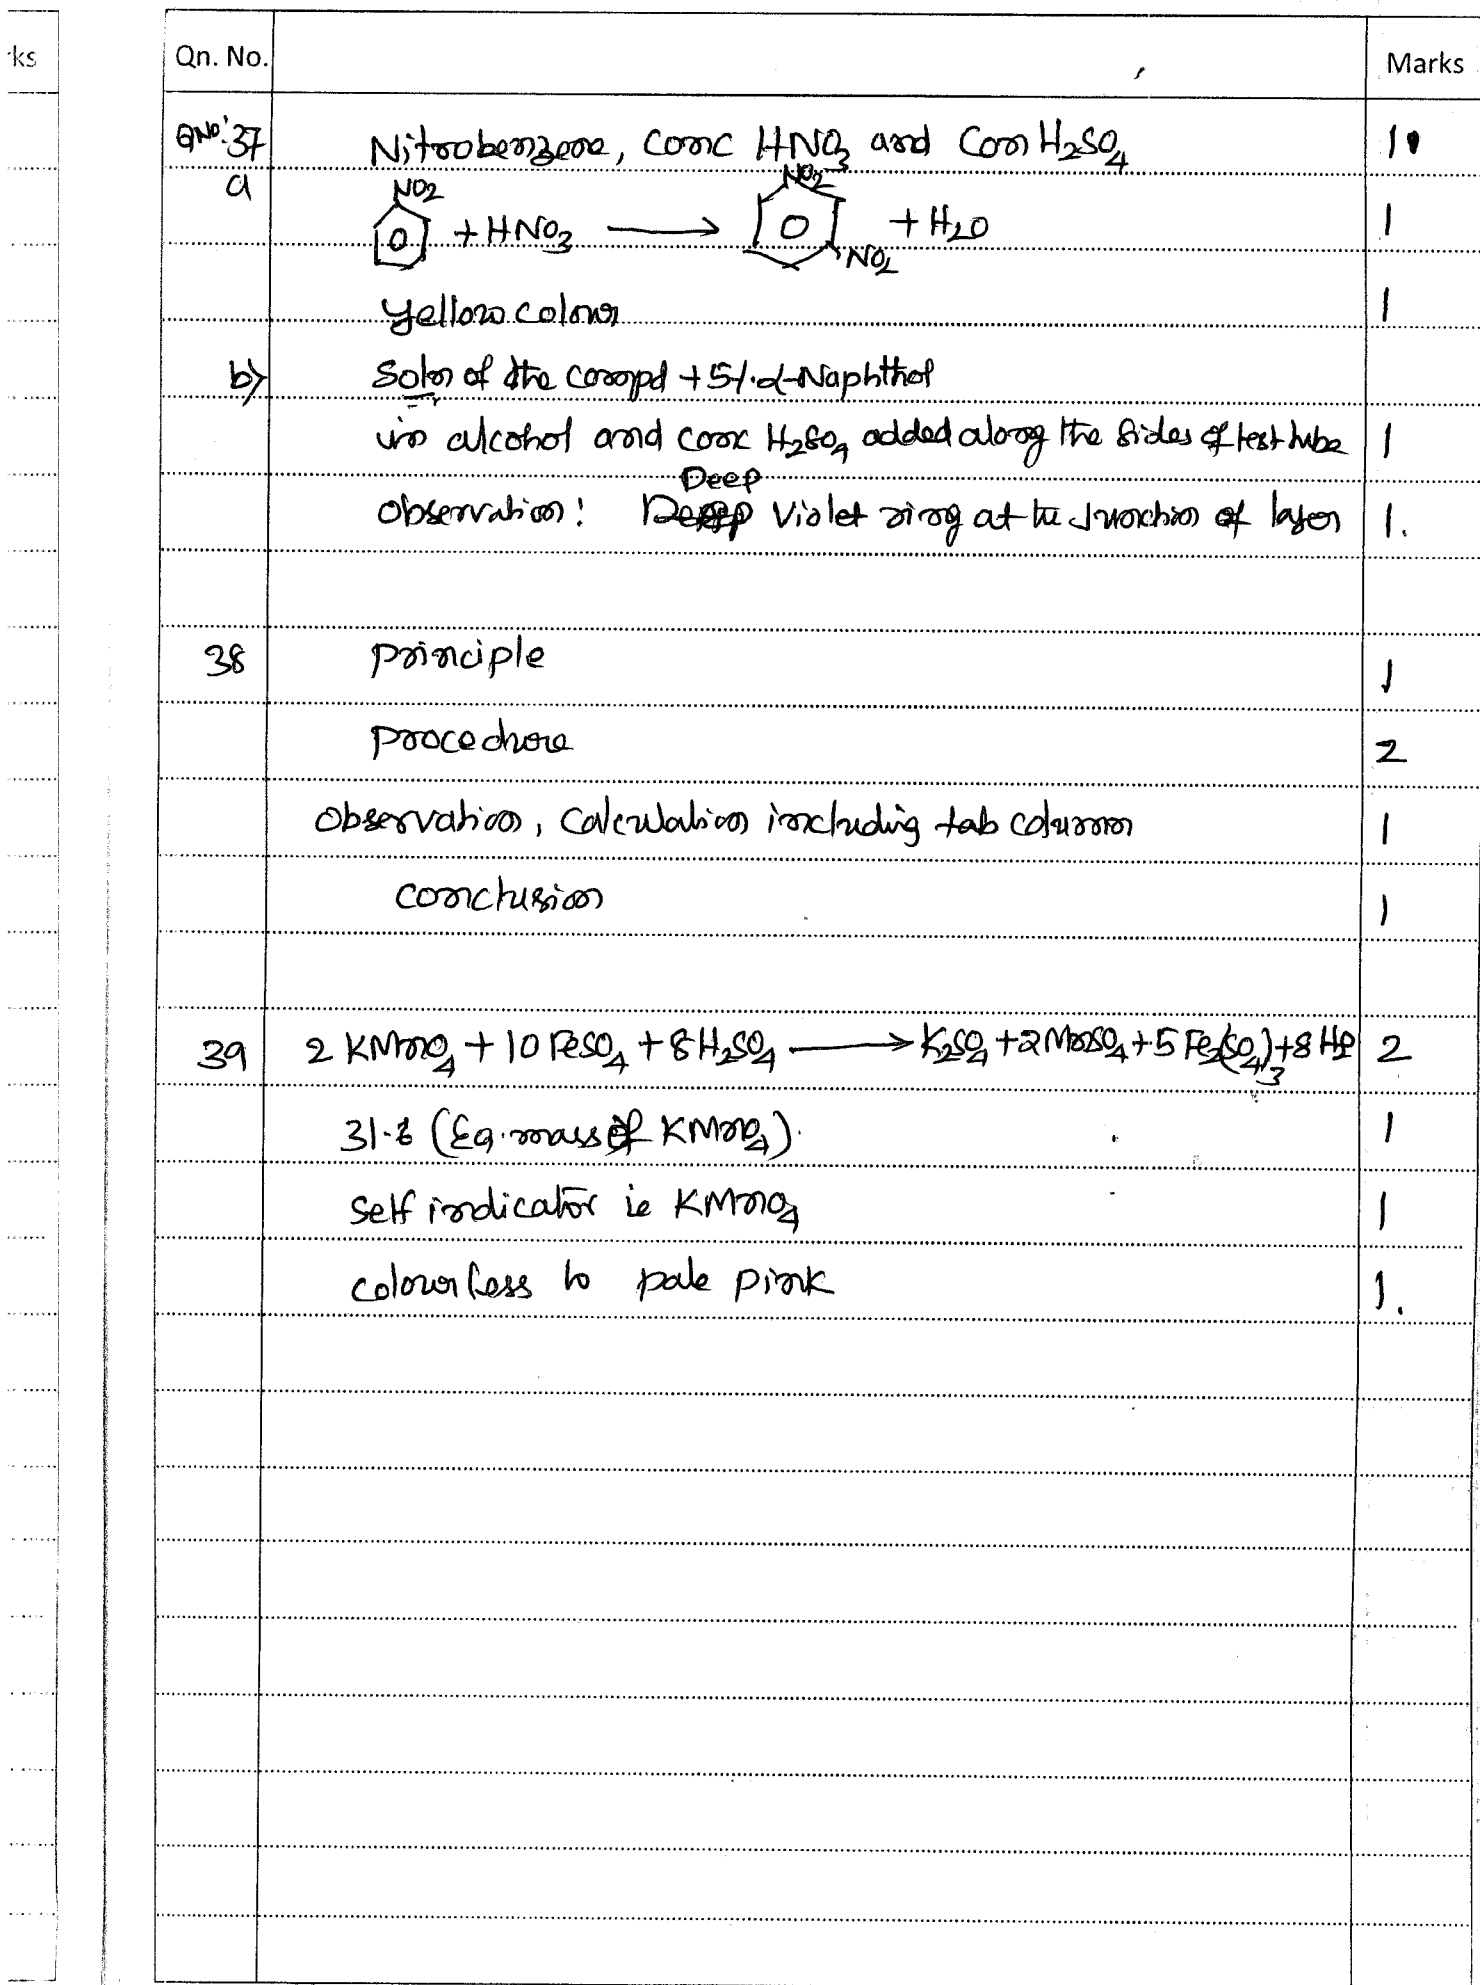 rks
Qn. No. Marks
QNo: 37 Nitrobenzene, conc HNO3 and Con H2SO4 1
a NO2 NO2
+ HNO3 ⟶ + H2O 1
NO2
Yellow colour 1
b) Soln of the compd + 5% α-Naphthol
in alcohol and conc H2SO4 added along the sides of test tube 1
Deep
Observation: Violet ring at the Junction of layer 1.
38 principle 1
procedure 2
Observation, Calculation including tab column 1
conclusion 1
39 2 KMnO4 + 10 FeSO4 + 8 H2SO4 ⟶ K2SO4 + 2 MnSO4 + 5 Fe2(SO4)3 + 8 H2O 2
(Eq. mass of KMnO4). 1
Self indicator ie KMnO4 1
colourless to pale pink 1.